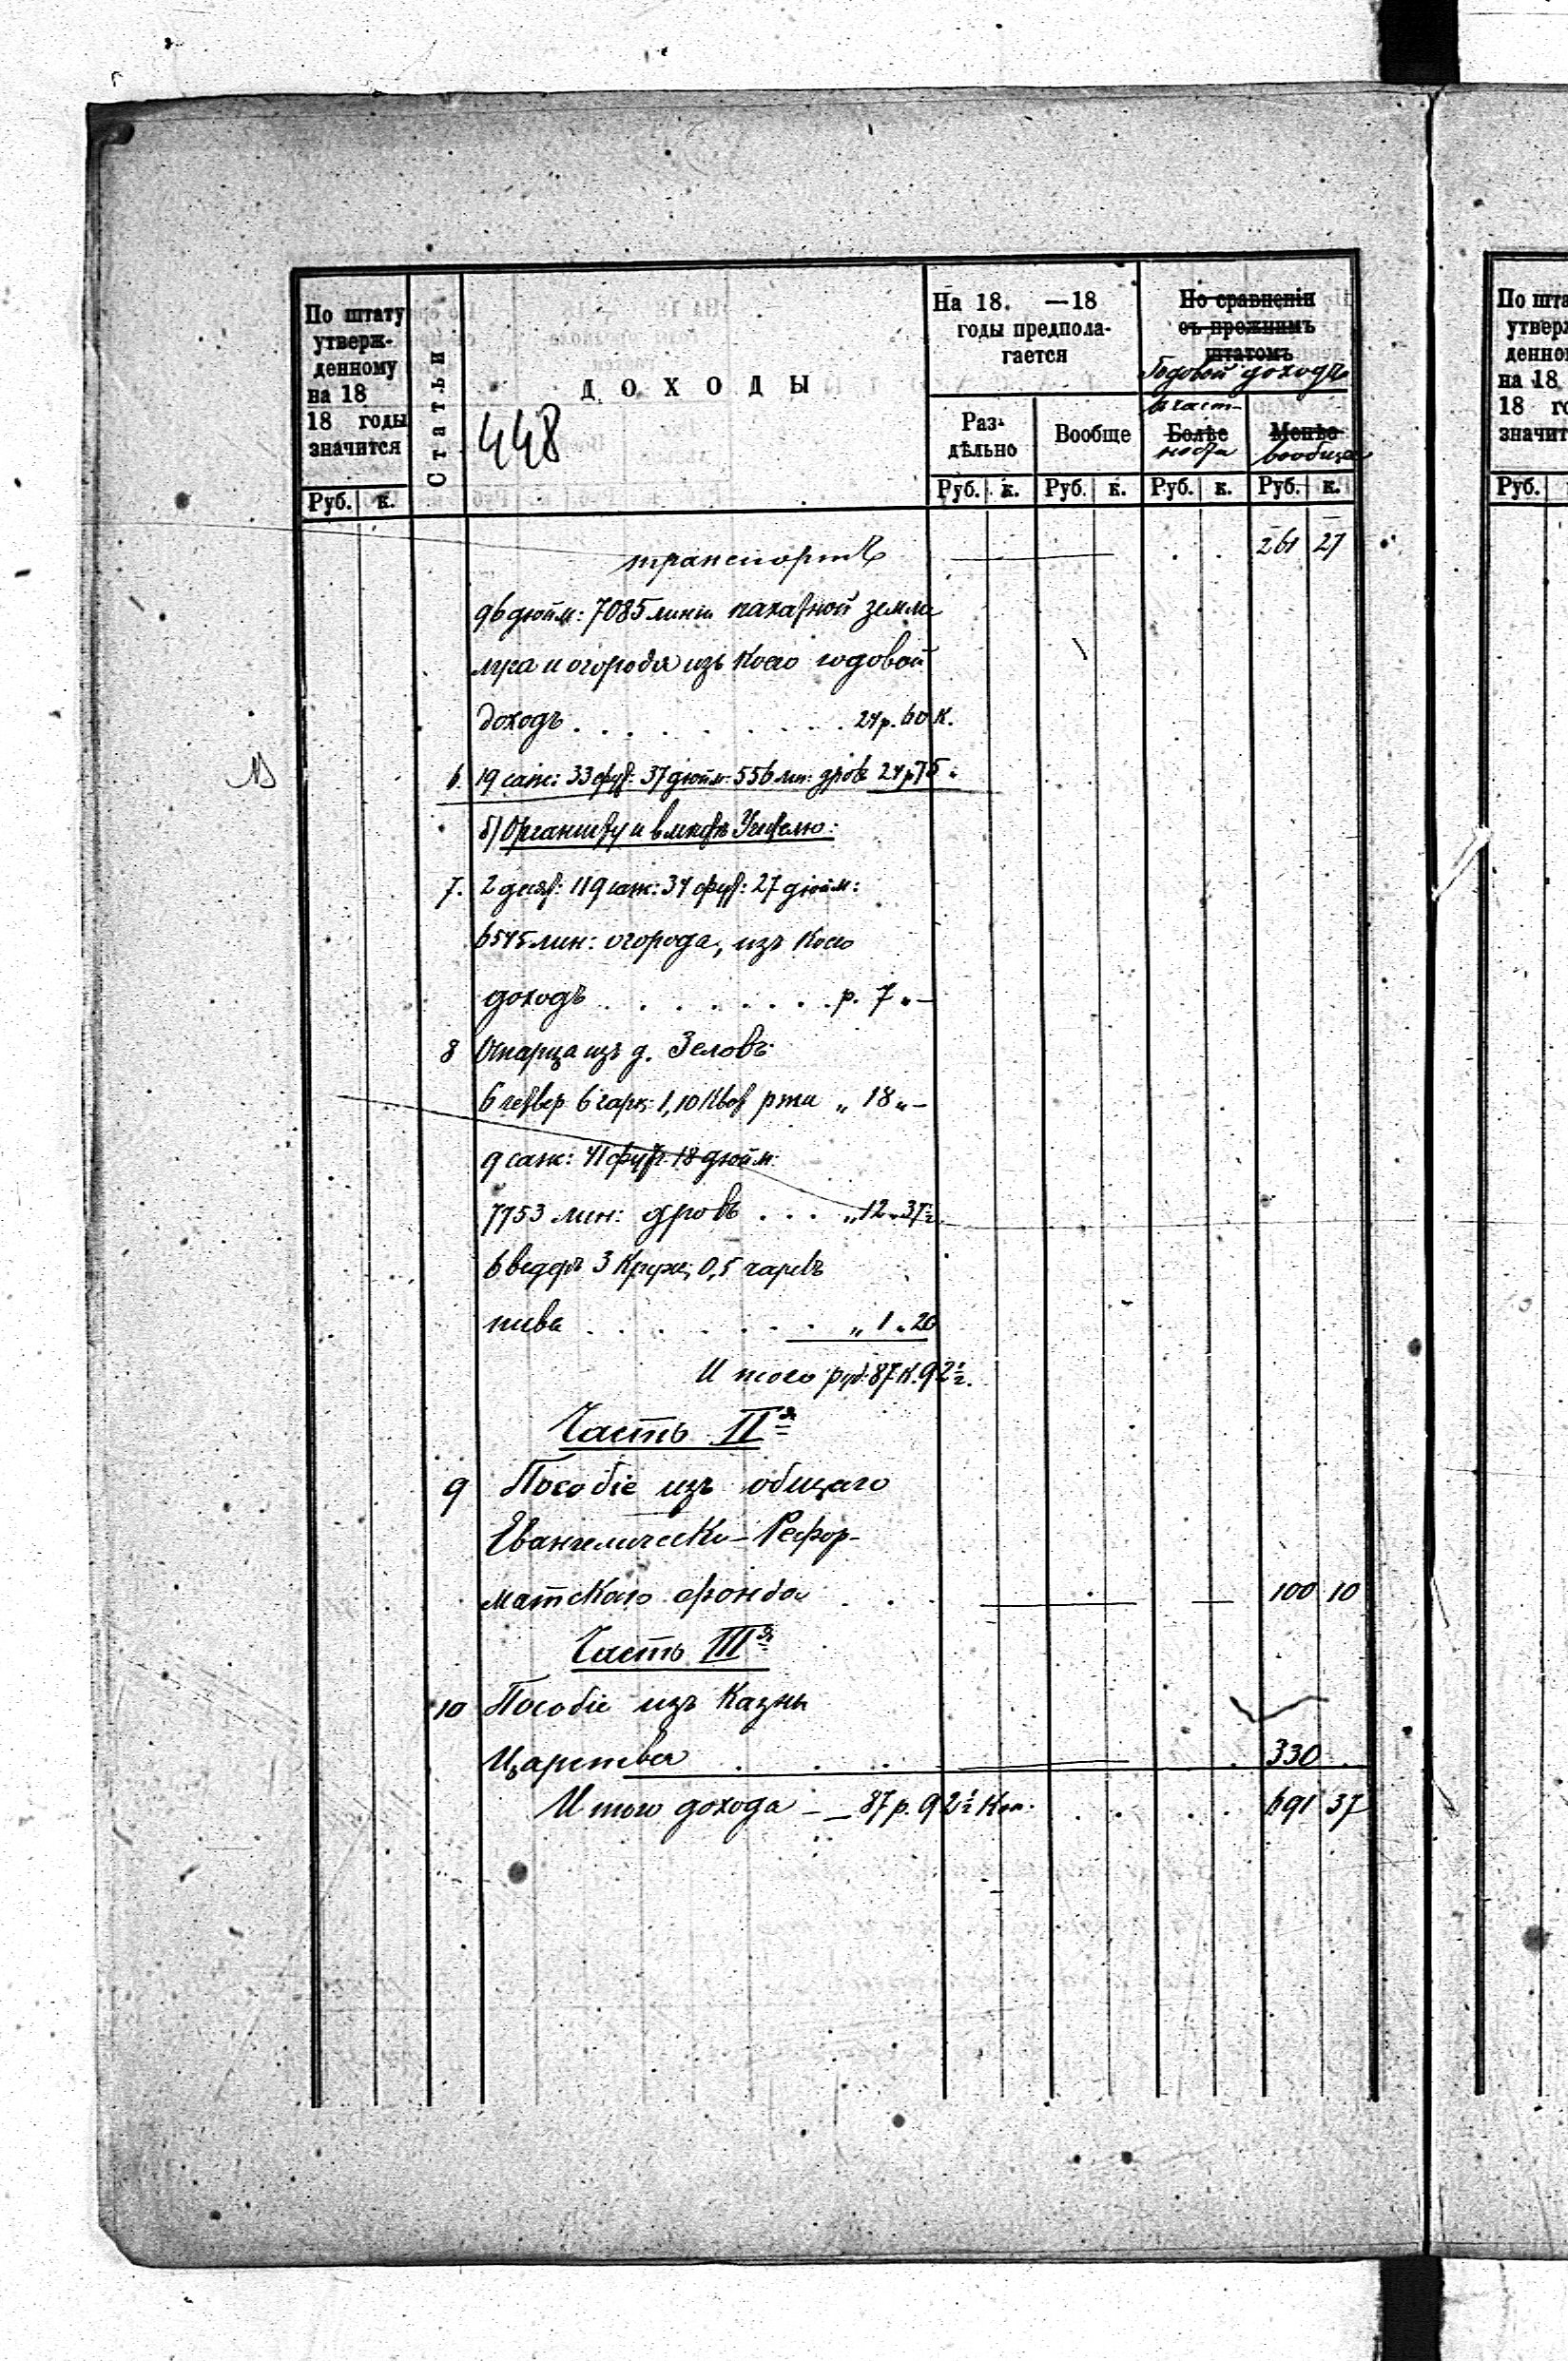 По штату утверж- денному на 18 18 годы значится
Статьи
ДОХОДЫ
448
На 18. —18 годы предпола- гается
По сравненію съ прежнимъ штатомъ
Годовой доходъ
Раз- дѣльно
Вообще
Болѣе
въ част- ности
Менѣе
вообще
Руб. к. Руб. к. Руб. к. Руб. к. Руб. к.
транспортъ 261 27
96 дюйм: 7085 линіи пахатной земли
луга и огорода изъ коего годовой
доходъ . . . . . . . . 24 р. 60 к.
6. 19 саж: 33 фут: 37 дюйм: 556 лин: дровъ 24 р 75 "
б) Органисту и вмѣстѣ Учителю:
7. 2 десят: 119 саж: 34 фут: 27 дюйм:
6545 лин: огорода, изъ коего
доходъ . . . . . . . р. 7 " —
8 изъ д. Зеловъ:
6 четвер 6 гарн: 1,10 Кварт ржи " 18 " —
9 саж: 41 фут: 18 дюйм:
7753 лин: дровъ . . . " 12 " 37½.
6 ведръ 3 Круж; 0,5 чарокъ
пива . . . . . . . " 1 " 20
Итого руб: 87 К. 92½.
Часть IIя
9 Пособіе изъ общаго
Евангелическо-Рефор-
матскаго фонда . . . 100 10
Часть IIIя
10 Пособіе изъ Казны
Царства . . . . 330 .
Итого дохода — — 87 р. 92½ Коп. . . . . 691 37
По шта утверж денно на 18 18 го значит
Руб.